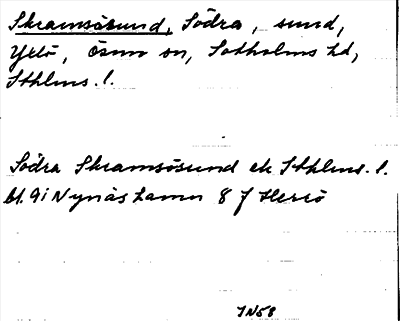 Skramsösund, Södra, sund,
Yxlö, Ösmo sn, Sotholms hd,
Sthlms. l.
Södra Skramsösund ek Sthlms. l.
bl. 9i Nynäshamn 8 f Herrö
JN58